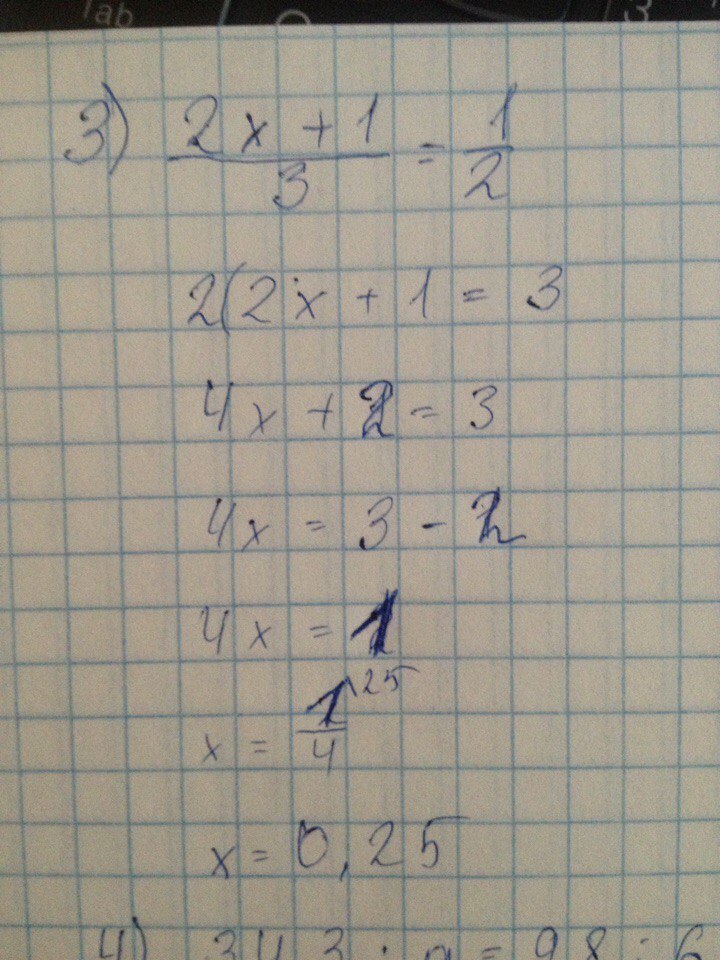 Tab
3
3) 2x + 1 / 3 = 1 / 2
2(2x + 1 = 3
4x + 2 = 3
4x = 3 - 2
4x = 1
x = 1\25 / 4
x = 0,25
4) 343 : a = 98 : 6